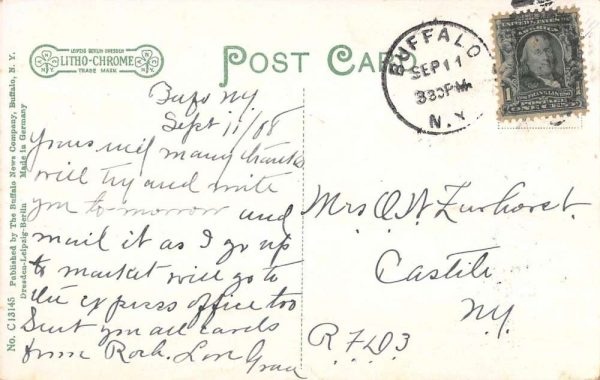 LEIPZIG BERLIN DRESDEN
LITHO-CHROME
TRADE MARK
POST CARD
BUFFALO
SEP 11
3 30 PM
N.Y.
UNITED STATES
FRANKLIN
POSTAGE
ONE CENT
Bufo NY
Sept 11/08
Yours rec'd many thanks
will try and write
you tomorrow and
mail it as I go up
to market will go to
the express office too
Sent you all cards
from Roch. Love Grace
Mrs O. W.
Castile
NY.
R.F.D3
No. C13145 Published by The Buffalo News Company, Buffalo, N. Y.
Dresden-Leipzig-Berlin Made in Germany